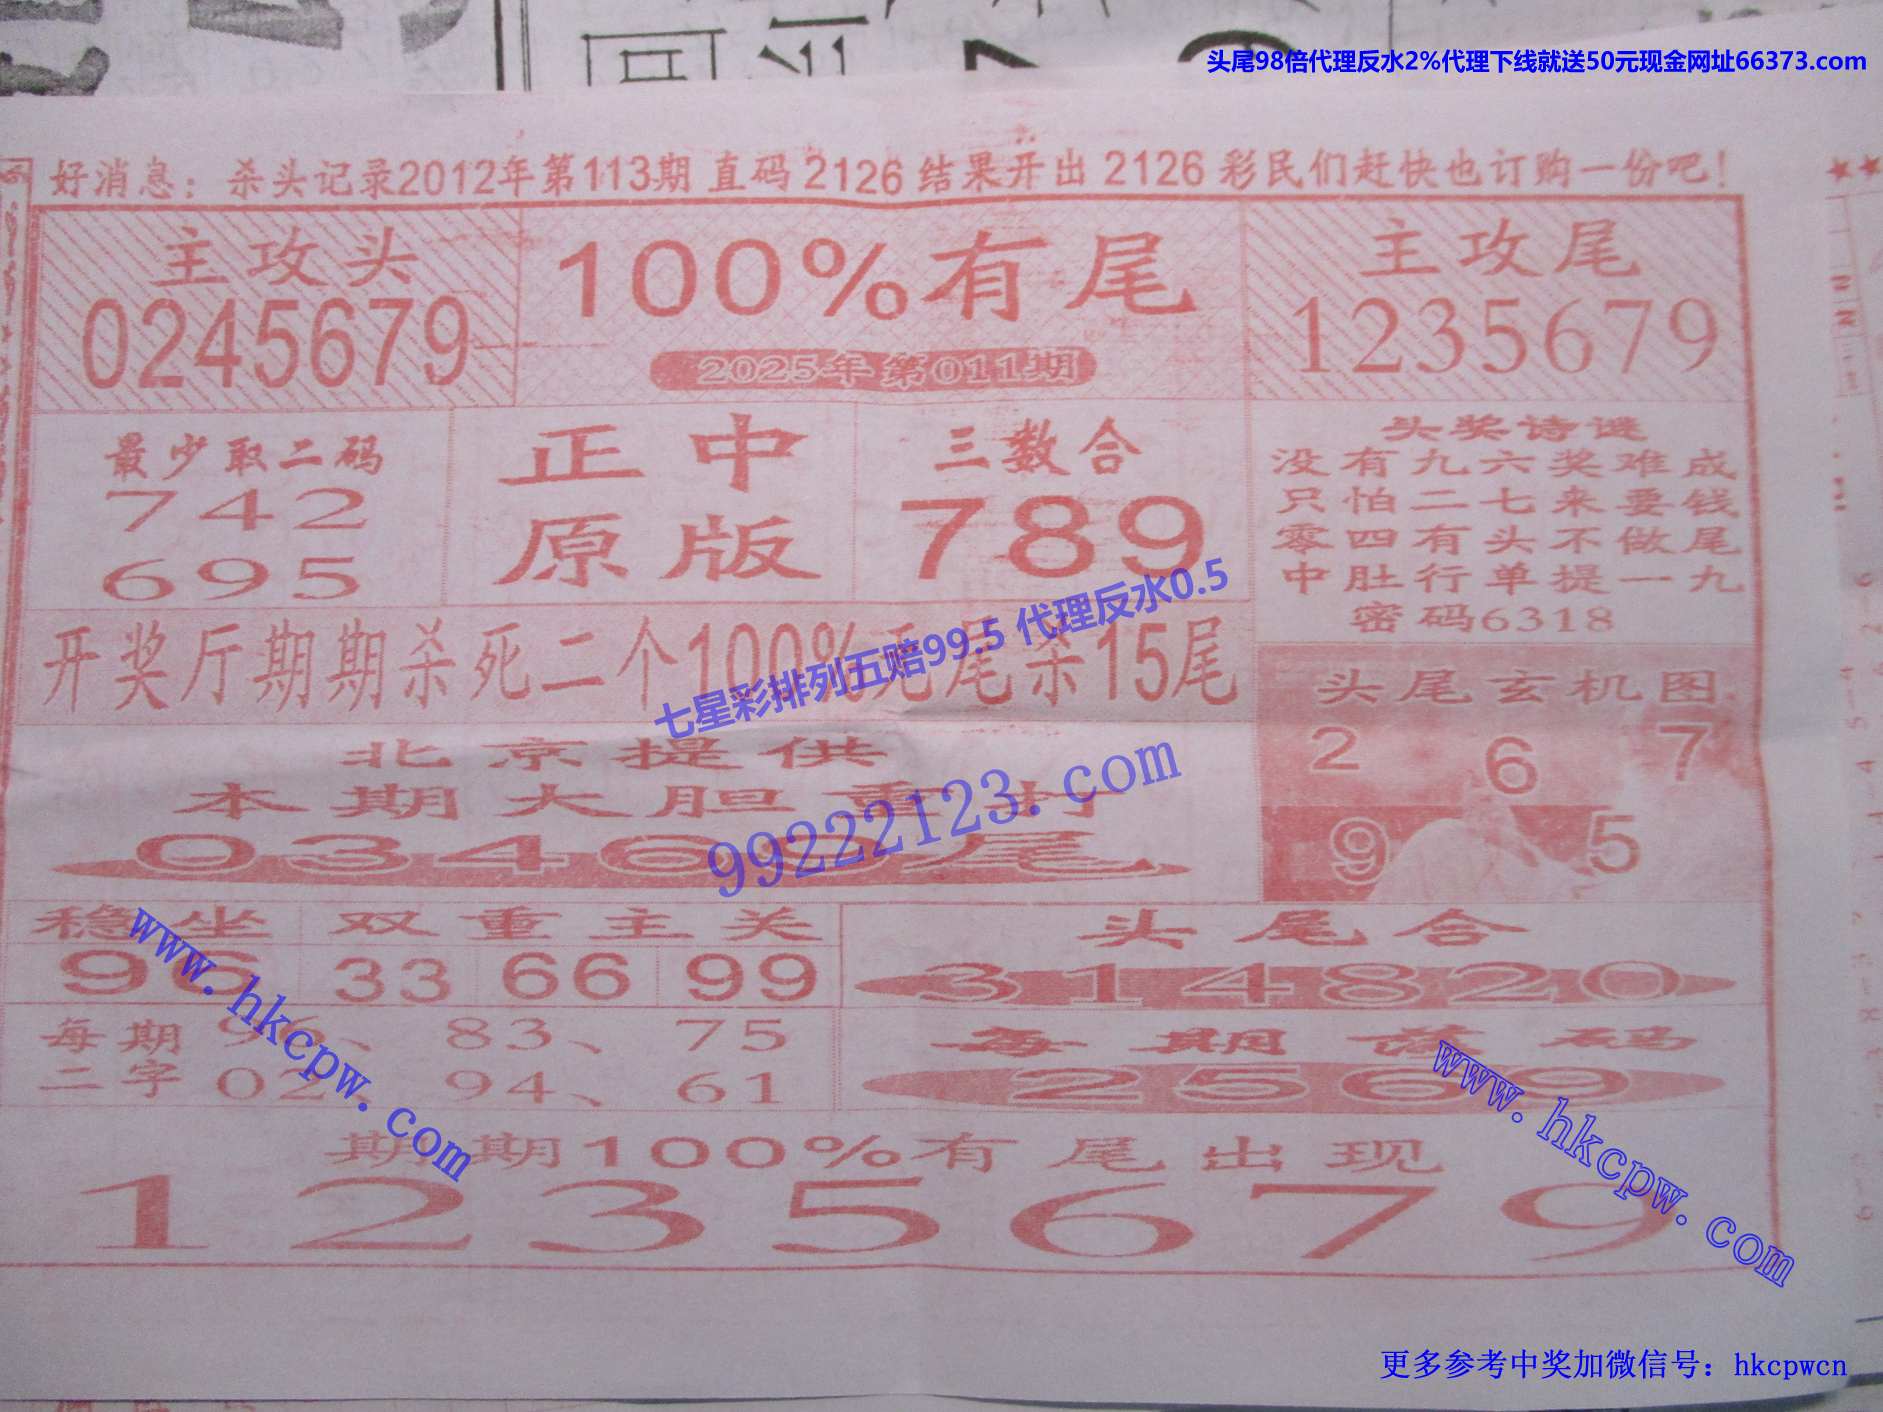 头尾98倍代理反水2%代理下线就送50元现金网址66373.com
好消息：杀头记录2012年第113期 直码 2126 结果开出 2126 彩民们赶快也订购一份吧！
主攻头
0245679
100%有尾
2025年第011期
主攻尾
1235679
最少取二码
742
695
正中
原版
三数合
789
头奖诗谜
没有九六奖难成
只怕二七来要钱
零四有头不做尾
中肚行单提一九
密码6318
开奖厅期期杀死二个100%无尾杀15尾
七星彩排列五赔99.5 代理反水0.5
头尾玄机图
2 6 7
9 5
北京提供
本期大胆重
99222123.com
0346 尾
稳坐
96
双重主关
33 66 99
头尾合
314820
每期二字
96、83、75
02、94、61
每期落码
2569
www.hkcpw.com
www.hkcpw.com
期期100%有尾出现
1235679
更多参考中奖加微信号：hkcpwcn